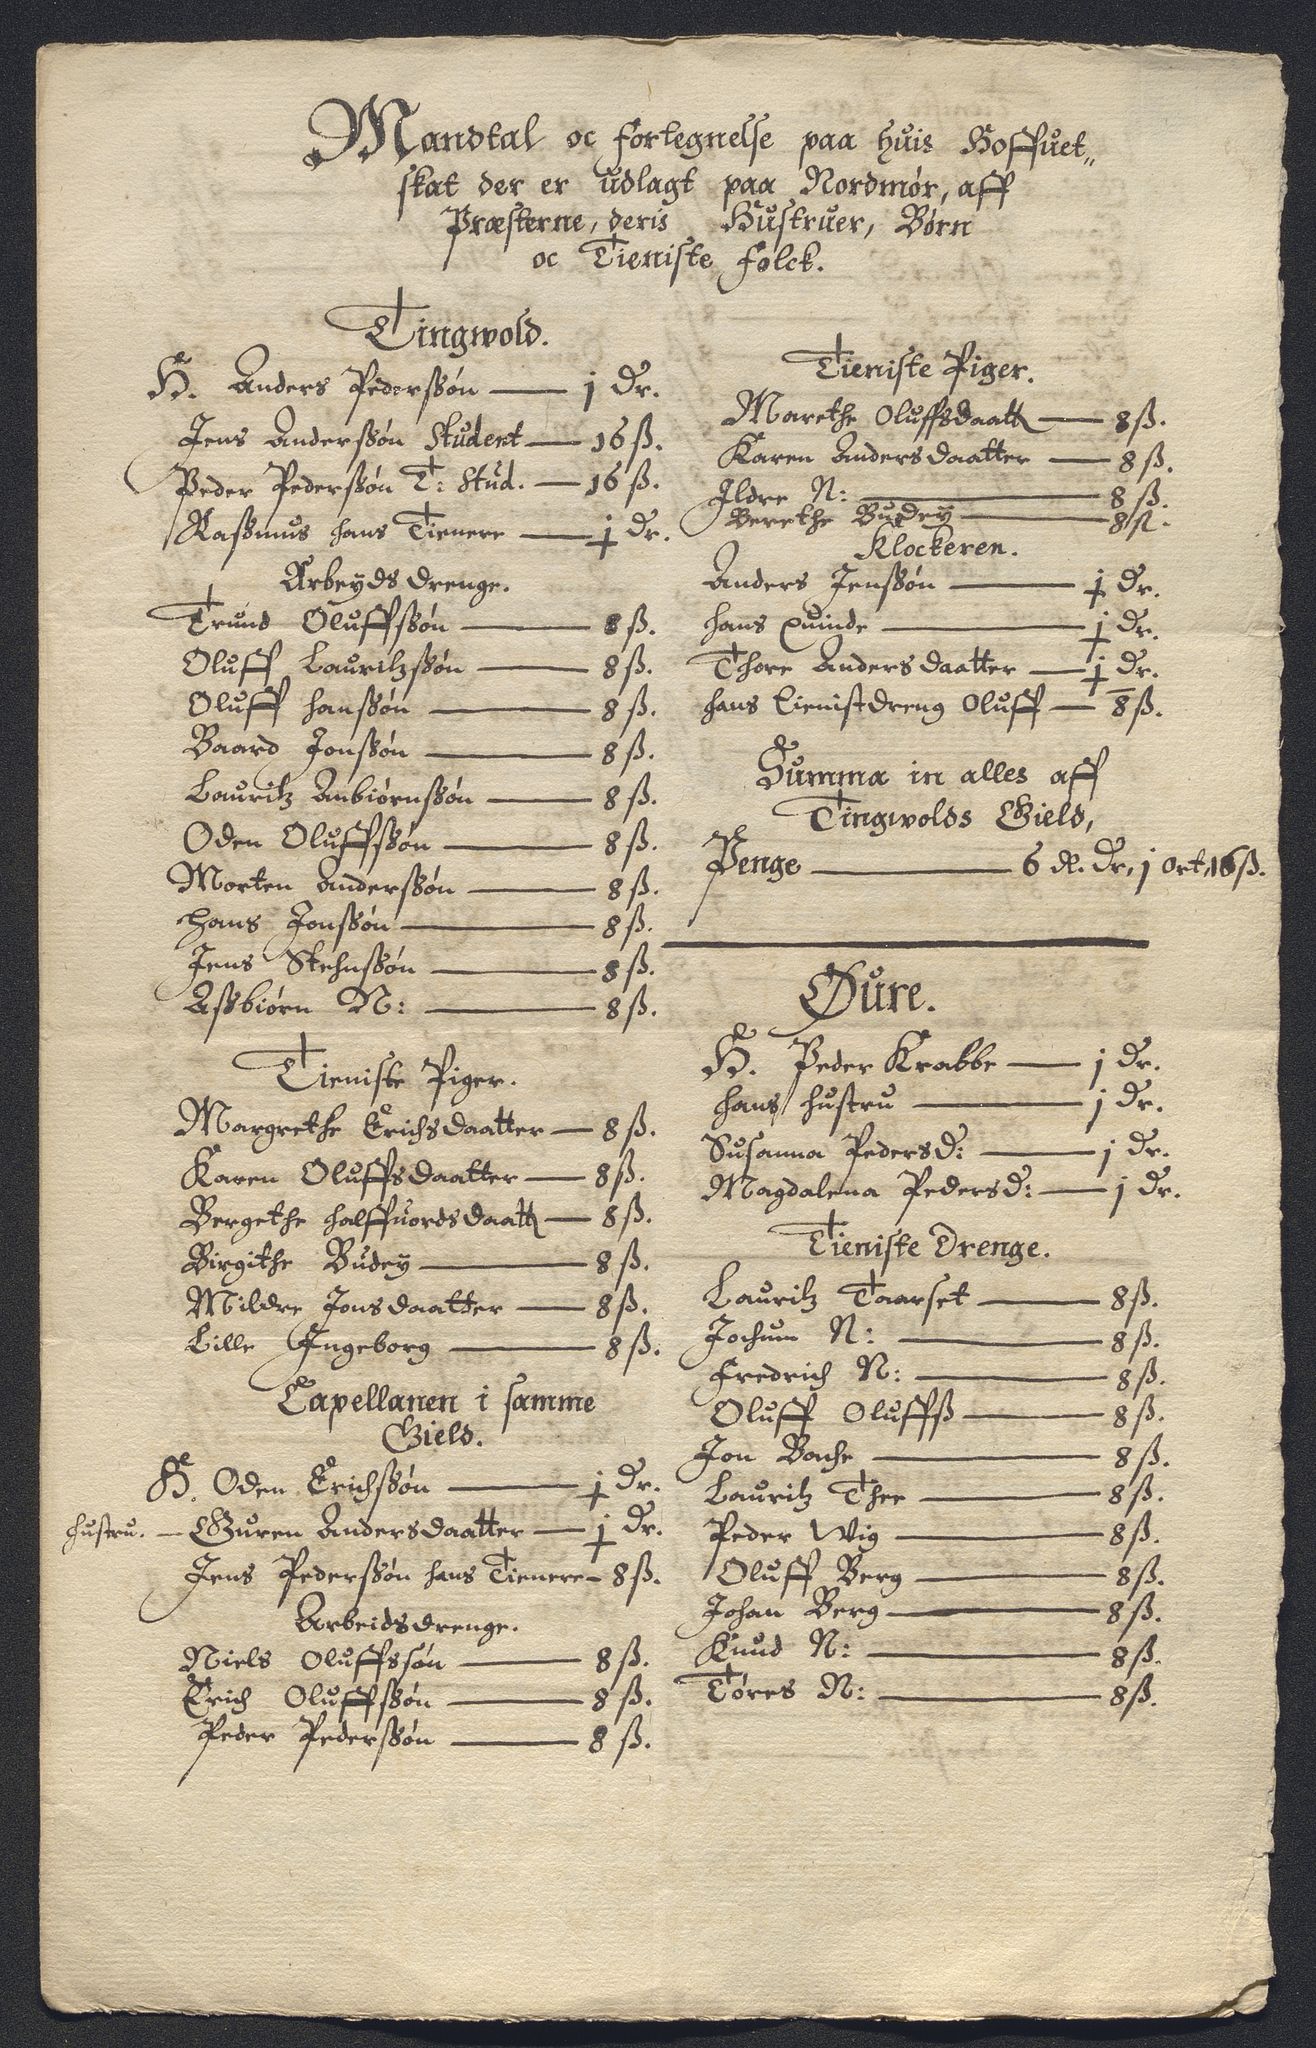 Mandtal oc fortegnelse paa huis Hoffuet„
skat der er udlagt paa Nordmør, aff
Præsterne, deris Hustruer, Børn
oc Tieniste folck.
Tingwold.
H. Anders Pederssøn — j Dr.
Jens Anderssøn Student — 16 ß.
Peder Pederssøn T: Stud. — 16 ß.
Rassmus hans Tienere — j Dr.
Arbeydsdrenge.
Trund Oluffssøn — 8 ß.
Oluff Lauritzssøn — 8 ß.
Oluff hanssøn — 8 ß.
Baard Jonssøn — 8 ß.
Lauritz Anbiørnssøn — 8 ß.
Oden Oluffssøn — 8 ß.
Morten Anderssøn — 8 ß.
hans Jonssøn — 8 ß.
Jens Stehnssøn — 8 ß.
Assbiørn N: — 8 ß.
Tieniste Piger.
Margrethe Erichsdaatter — 8 ß.
Karen Oluffsdaatter — 8 ß.
Bergethe halffuordsdaatt — 8 ß.
Birgithe Budey — 8 ß.
Mildre Jonsdaatter — 8 ß.
Lille Ingeborg — 8 ß.
Capellanen i samme
Gield.
H. Oden Erichssøn — j Dr.
hustru. — Guren Andersdaatter — j Dr.
Jens Pederssøn hans Tienere — 8 ß.
Arbeidsdrenge.
Niels Oluffssøn — 8 ß.
Erich Oluffssøn — 8 ß.
Peder Pederssøn — 8 ß.
Tieniste Piger.
Marethe Oluffsdaatt — 8 ß.
Karen Andersdaatter — 8 ß.
Ildre N: — 8 ß.
Berethe Budey — 8 ß.
Klockeren.
Anders Jenssøn — j Dr.
hans quinde — j Dr.
Thore Andersdaatter — j Dr.
hans tienistdreng Oluff — 8 ß.
Summa in alles aff
Tingwolds Gield,
Penge — 6 dl. Dr, j ort, 16 ß.
Øure.
H. Peder Krabbe — j Dr.
hans hustru — j Dr.
Susanna Pedersd: — j Dr.
Magdalena Pedersd: — j Dr.
Tieniste Drenge.
Lauritz Taarset — 8 ß.
Jochum N: — 8 ß.
Fredrich N: — 8 ß.
Oluff Oluffß — 8 ß.
Jon Bache — 8 ß.
Lauritz Thee — 8 ß.
Peder Wig — 8 ß.
Oluff Berg — 8 ß.
Johan Berg — 8 ß.
Knud N: — 8 ß.
Tøres N: — 8 ß.